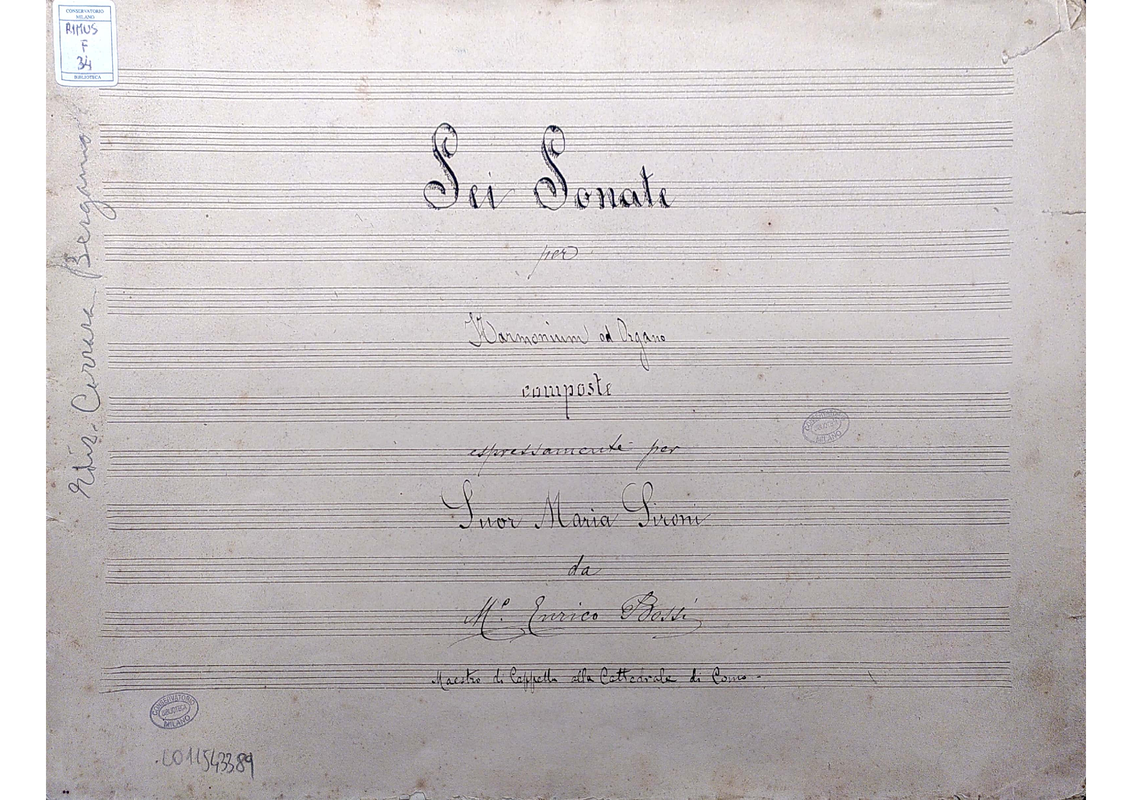 CONSERVATORIO
MILANO
RIMUS
F
34
BIBLIOTECA
Sei Sonate
per
Harmonium od Organo
composte
espressamente per
Suor Maria Sironi
da
M.º Enrico Bossi
Maestro di Cappella alla Cattedrale di Como -
Ediz. Carrara Bergamo
CONSERVATORIO
BIBLIOTECA
MILANO
CONSERVATORIO
BIBLIOTECA
MILANO